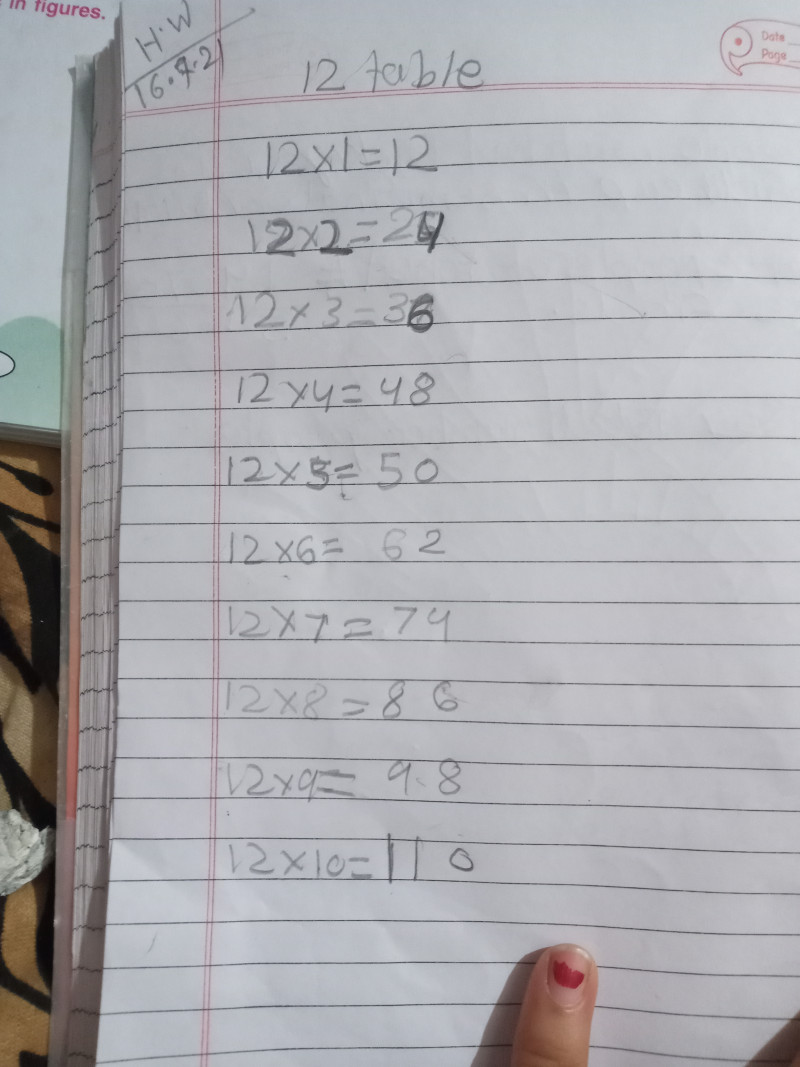 in figures.
H.W
16.9.21
12 table
Date
Page
12×1=12
12×2=24
12×3=36
12×4=48
12×5=50
12×6=62
12×7=74
12×8=86
12×9=9.8
12×10=110